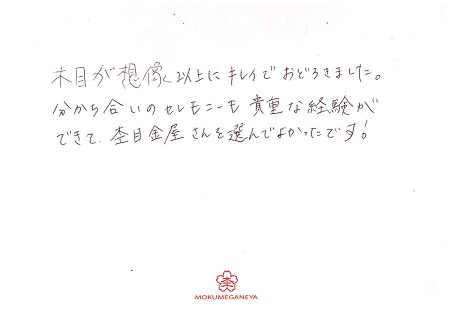 木目が想像以上にキレイでおどろきました。
分かち合いのセレモニーも貴重な経験が
できて、杢目金屋さんを選んでよかったです!
杢
MOKUMEGANEYA